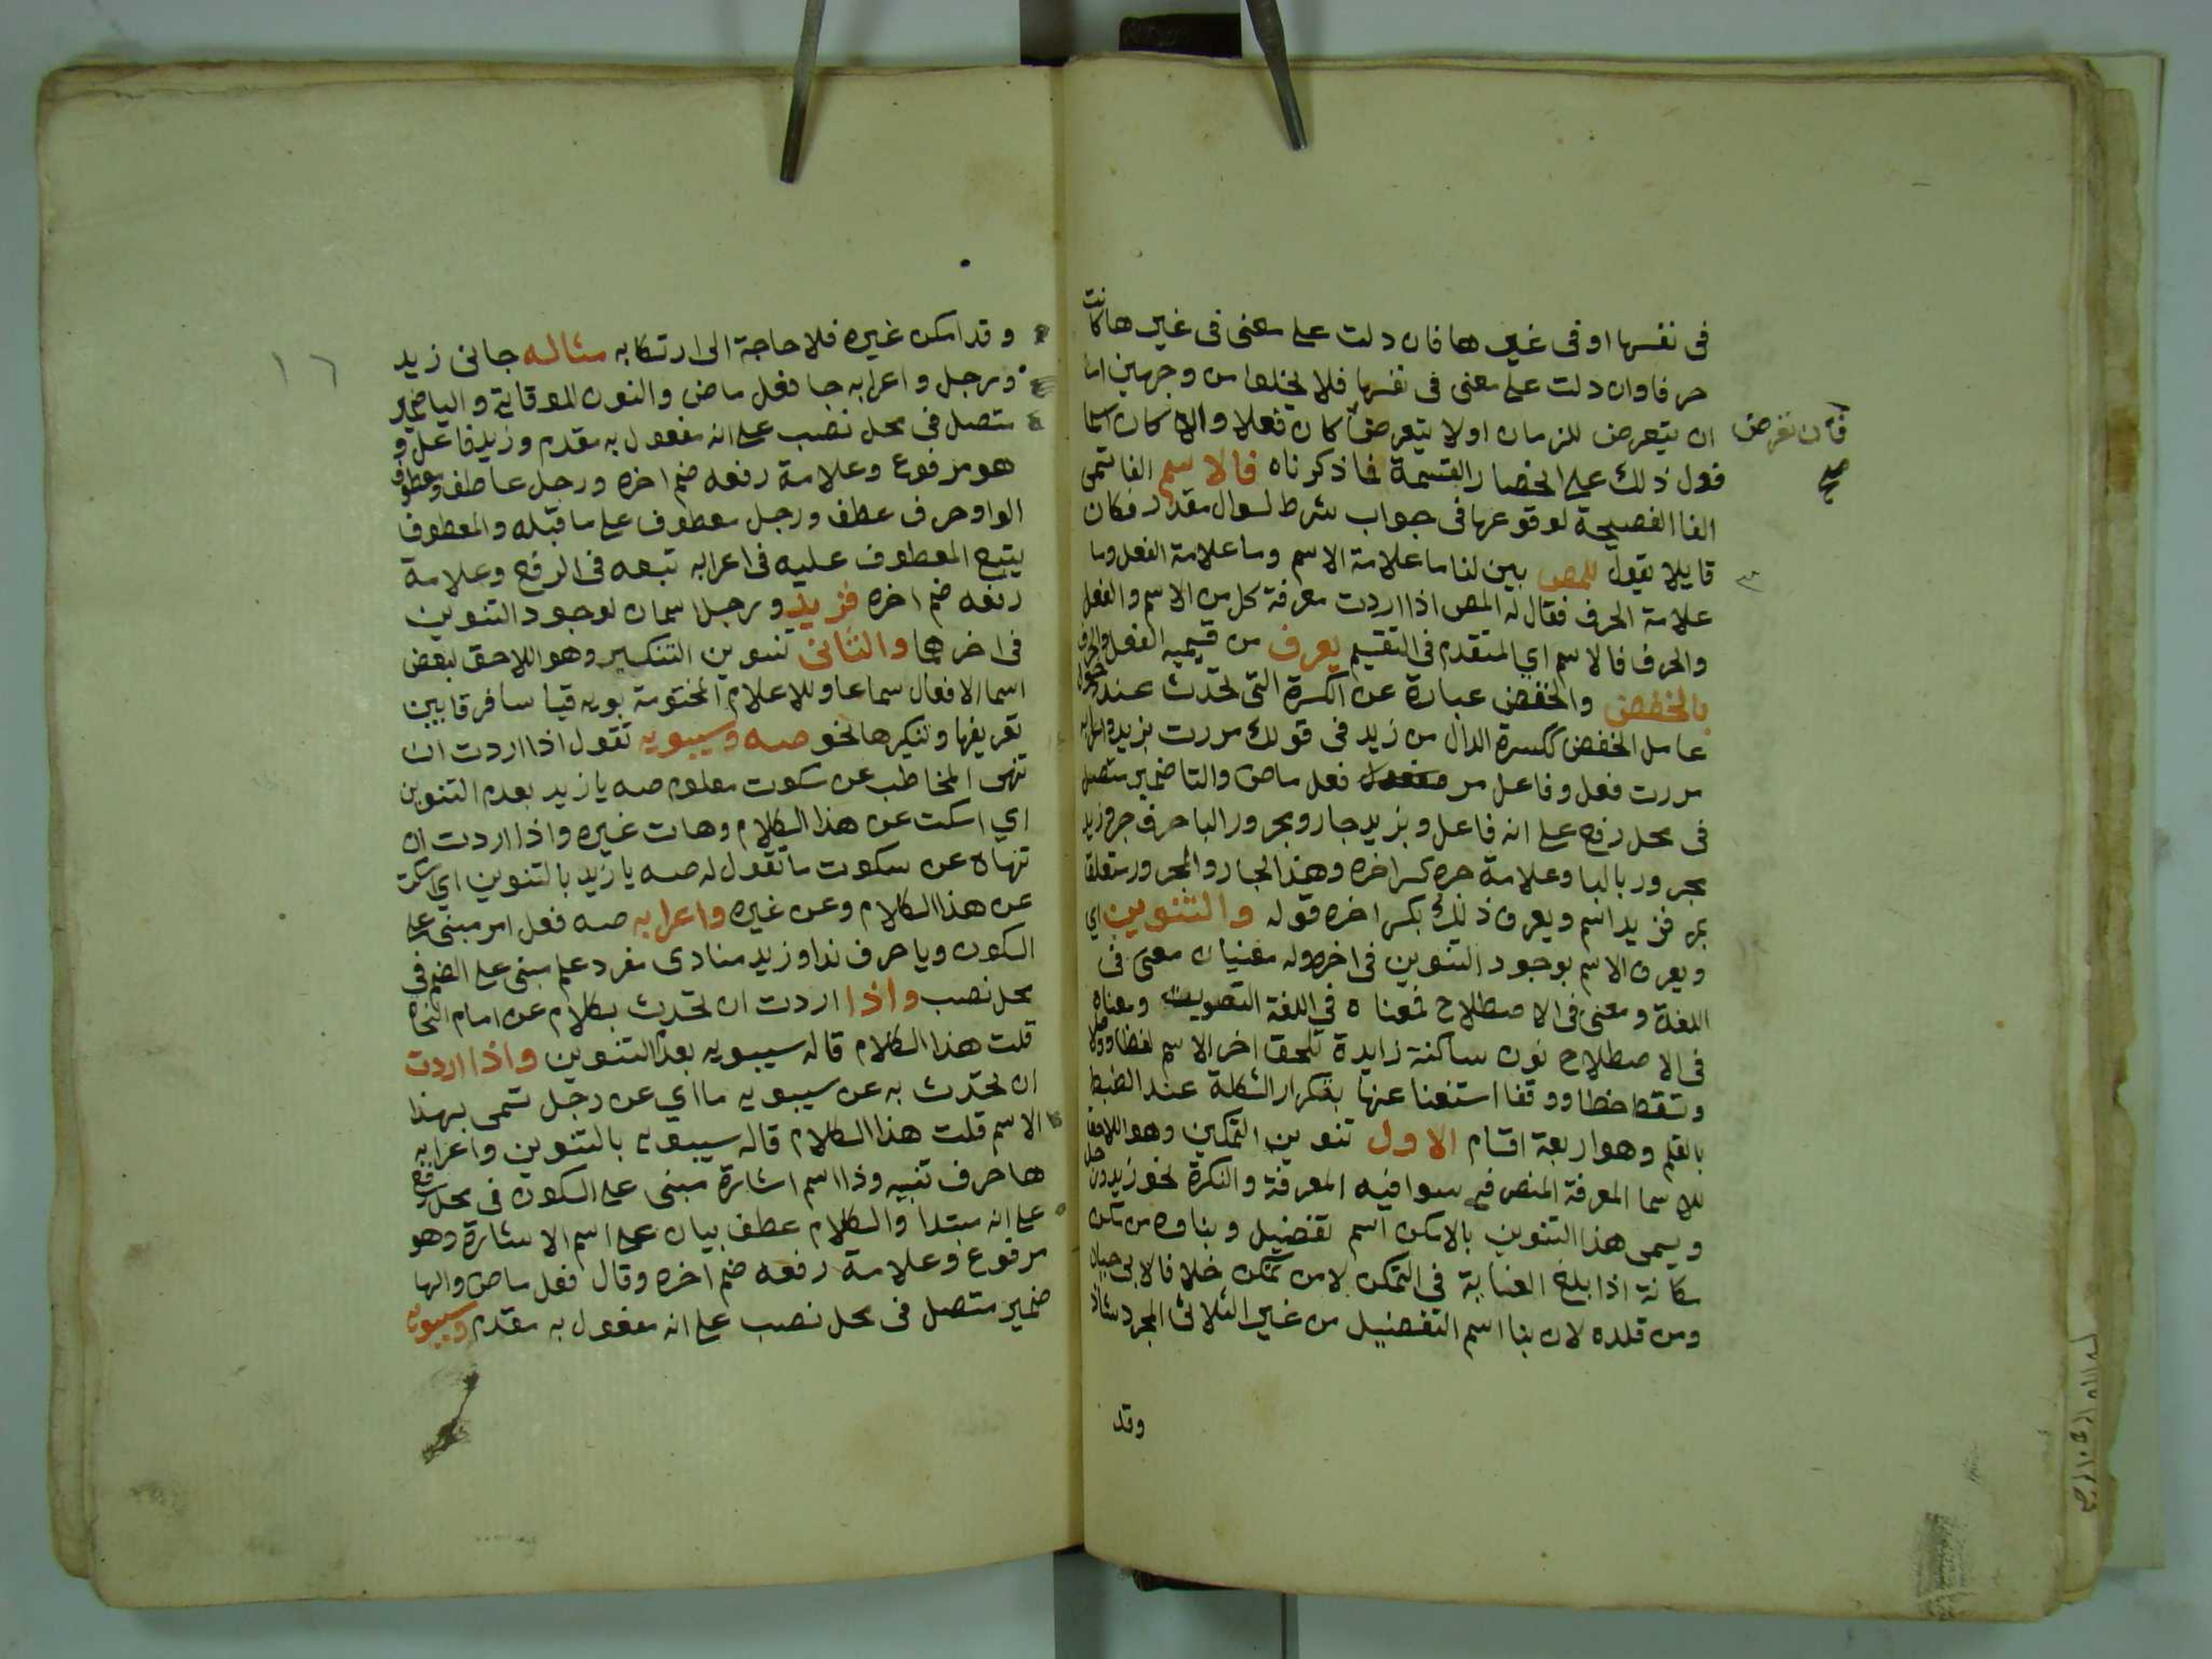 فى نفسها او فى غيرها فان دلت على معنى فى غيرها كانت
حرفا وان دلت على معنى فى نفسها فلا يخلوا من وجهين اما
ان يتعرض للزمان او لا يتعرض كان فعلا والا كان اسما
فان تعرض
صح
فدل ذلك على انحصار القسمة فما ذكرناه فالاسم الفا تسمى
الفا الفصيحة لوقوعها فى جواب شرط لسوال مقدر فكان
قايلا يقول للمص بين لنا ما علامة الاسم وما علامة الفعل وما
علامة الحرف فقال له المص اذا اردت معرفة كل من الاسم والفعل
والحرف فالاسم اي المتقدم فى التقسيم يعرف من قسيميه الفعل والحرف
بالخفض والخفض عبارة عن الكسرة التى تحدث عند دخول
عامل الخفض ككسرة الدال من زيد فى قولك مررت بزيد واعرابه
مررت فعل وفاعل مر فعل ماض والتا ضمير متصل
فى محل رفع على انه فاعل وبزيد جار ومجرور البا حرف جر وزيد
مجرور بالبا وعلامة جره كسر اخره وهذا الجار والمجرور متعلقا
بمر فزيد اسم ويعرف ذلك بكسر اخره قوله والتنوين اي
ويعرف الاسم بوجود التنوين فى اخره وله معنيان معنى فى
اللغة ومعنى فى الاصطلاح فمعناه فى اللغة التصويت ومعناه
فى الاصطلاح نون ساكنة زايدة تلحق اخر الاسم لفظا ووصلا
وتسقط خطا ووقفا استغنا عنها بتكرار الشكلة عند الضبط
بالقلم وهو اربعة اقسام الاول تنوين التمكين وهو اللاحق
للاسما المعرفة المنصرفه سوا فيه المعرفة والنكرة نحو زيد ورجل
ويسمى هذا التنوين بالامكن اسم تفضيل وبناوه من تمكن
مكانة اذا بلغ الغناية فى التمكن لا من تمكن خلافا لابى حيان
ومن قلده لان بنا اسم التفضيل من غير الثلاثى المجرد شاذ
وقد
١٦
وقد امكن غيره فلا حاجة الى ارتكابه مثاله جانى زيد
ورجل واعرابه جا فعل ماض والنون للوقاية واليا ضمير
متصل فى محل نصب على انه مفعول به مقدم وزيد فاعل و
هو مرفوع وعلامة رفعه ضم اخره ورجل عاطف ومعطوف
الواو حرف عطف ورجل معطوف على ما قبله والمعطوف
يتبع المعطوف عليه فى اعرابه تبعه فى الرفع وعلامة
رفعه ضم اخره فزيد ورجل اسمان لوجود التنوين
فى اخرهما والثانى تنوين التنكير وهو اللاحق لبعض
اسما الافعال سماعا وللاعلام المختومة بويه قيا سا فرقا بين
تعريفها وتنكيرها نحو صه وسيبويه تقول اذا اردت ان
تنهى المخاطب عن سكوت معلوم صه يا زيد بعدم التنوين
اي اسكت عن هذا الكلام وهات غيره واذا اردت ان
تنهاه عن سكوت ما تقول له صه يا زيد بالتنوين اي اسكت
عن هذا الكلام وعن غيره واعرابه صه فعل امر مبنى على
السكون ويا حرف ندا وزيد منادى مفرد علم مبنى على الضم فى
محل نصب واذا اردت ان تحدث بكلام عن امام النحاة
قلت هذا الكلام قاله سيبويه بعدم التنوين واذا اردت
ان تحدث به عن سيبويه ما اي عن رجل تسمى بهذا
الاسم قلت هذا الكلام قاله سيبويه بالتنوين واعرابه
ها حرف تنبيه وذا اسم اشارة مبنى على السكون فى محل رفع
على انه مبتدا والكلام عطف بيان على اسم الاشارة وهو
مرفوع وعلامة رفعه ضم اخره وقال فعل ماض والها
ضمير متصل فى محل نصب على انه مفعول به مقدم وسيبويه